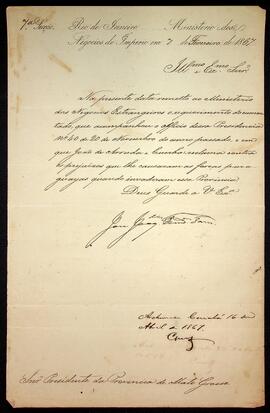 7ª Secção. Rio de Janeiro Ministerio dos
Negocios do Imperio em 7 de Fevereiro de 1867
Illmo e Exmo Snr.
Na presente data remetto ao Ministerio
dos Negocios Estrangeiros o requerimento documen-
tado, que acompanhou o officio dessa Presidencia
nº 60 de 20 de Novembro do anno passado, e em
que José de Arruda e Cunha reclama contra
os prejuizos que lhe causaram as forças para-
guayas quando invadiram essa Provincia
Deus Guarde a V. Exa.
José Joaq.
Cuiabá 16 de
Abril de 1867.
Snr. Presidente da Provincia de Mato Grosso